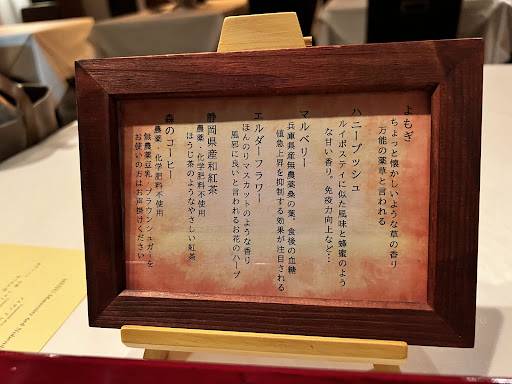 よもぎ
ちょっと懐かしいような草の香り
万能の薬草と言われる
ハニーブッシュ
ルイボスティに似た風味と蜂蜜のよう
な甘い香り。免疫力向上など‥
マルベリー
兵庫県産無農薬桑の葉。食後の血糖
値急上昇を抑制する効果が注目される
エルダーフラワー
ほんのりマスカットのような香り
風邪に良いと言われるお花のハーブ
静岡県産和紅茶
農薬・化学肥料不使用
ほうじ茶のようなやさしい紅茶
森のコーヒー
農薬・化学肥料不使用
無農薬豆乳・ブラウンシュガーを
お使いの方はお声掛けください